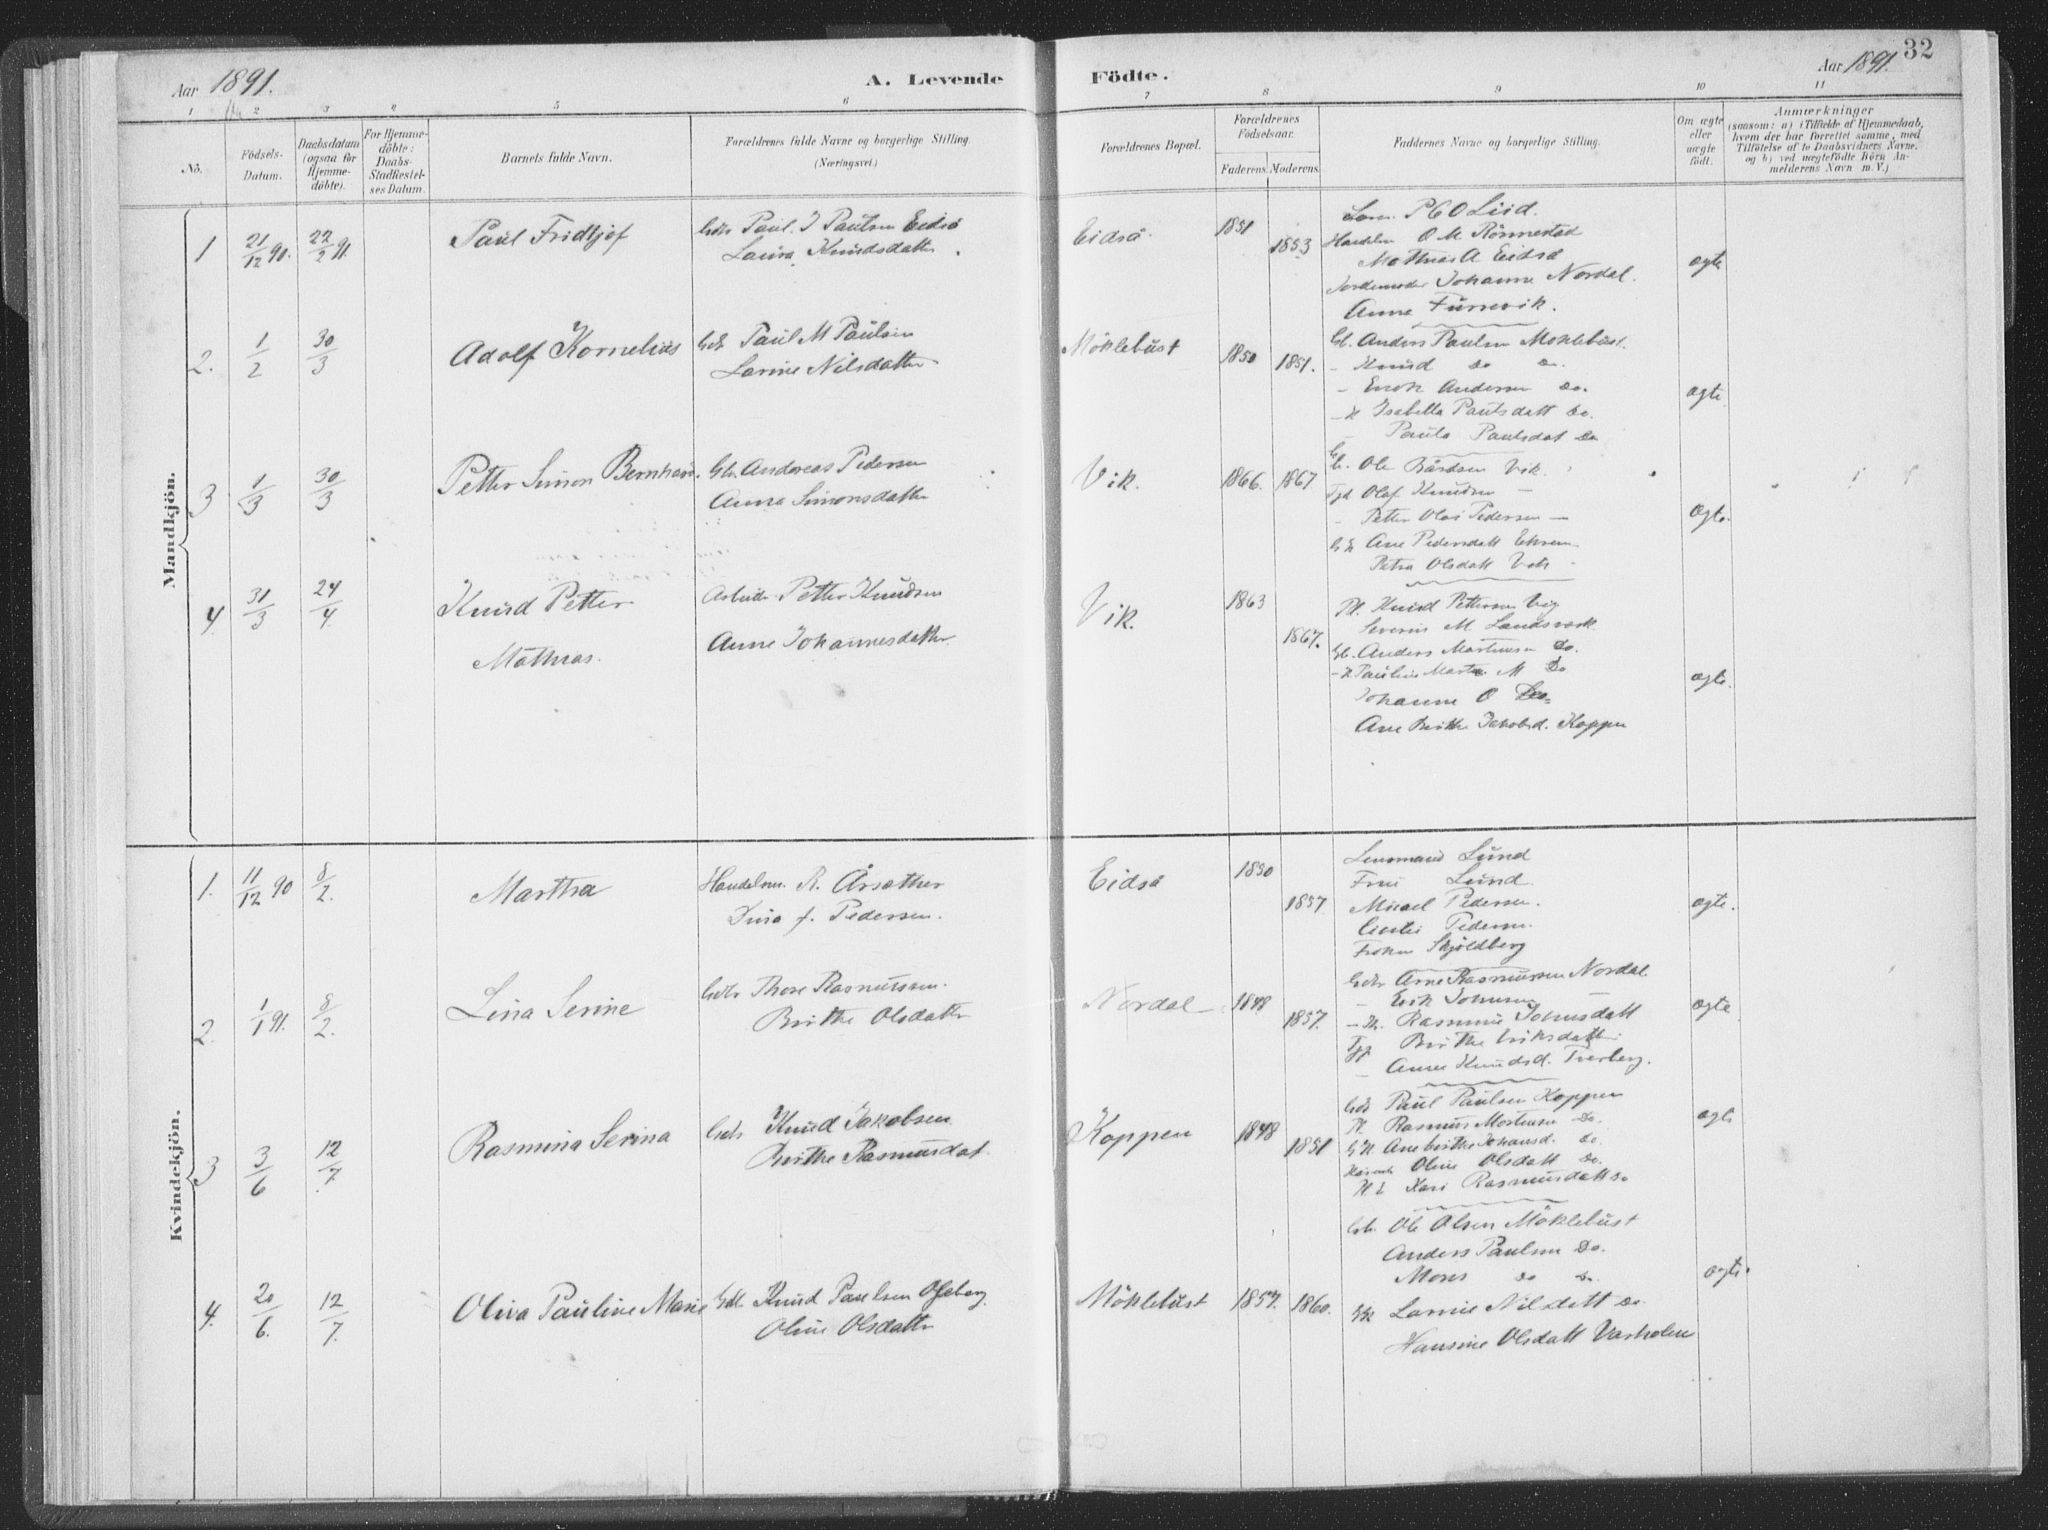 Aar 1891.
A. Levende Födte.
Aar 1891.
32
1 2 3 4 5 6 7 8 9 10 11
No.
Födsels-Datum.
Daabsdatum (ogsaa för Hjemmedöbte).
For Hjemmedöbte: Daabs-Stadfæstelses Datum.
Barnets fulde Navn.
Forældrenes fulde Navne og borgerlige Stilling. (Næringsvei.)
Forældrenes Bopæl.
Forældrenes Födselsaar.
Faderens. Moderens.
Faddernes Navne og borgerlige Stilling.
Om ægte eller uægte födt.
Anmærkninger
(saasom: a) i Tilfælde af Hjemmedaab,
hvem der har forrettet samme, med
Tilföielse af to Daabsvidners Navne.
og b) ved uægtefödte Börn An-
melderens Navn m. V.)
Mandkjön.
1 21/12 90. 22/2 91. Paul Fridtjof
Paul. J Paulsen Eidså
Laura Knudsdatter
Eidså 1851 1853
P C O Lund.
O M Rönnestad
Mathias A Eidså
Jordemoder Johanne Nordal.
Anne Furrevik.
ægte
2. 1/2 30/3 Adolf Kornelius
Paul M Paulsen
Larine Nilsdatter
Möklebust 1850 1851.
Gb. Anders Paulsen Moklebust.
- Knud do do.
- Erik Andersen do.
- K Isabella Paulsdatt do.
- Paula Paulsdat do
ægte
3 1/3 30/3 Petter Simon Bernhard.
Gb. Andreas Pedersen
Anna Simonsdatter
Vik. 1866. 1867.
Gb. Ole Bårdsen Vik.
Olaf Knudsen -
- Petter Olai Pedersen -
Ane Pedersdatt
Petra Olsdatt Vik
ægte.
4. 31/3 24/4 Knud Petter
Mathias.
Petter Knudsen
Anne Johannesdatter
Vik. 1863 1867.
Knud Pettersen Vig
Severin M Landsverk
Gb. Anders Martinsen Do.
M Do
Johanne O Do
Ane Birthe Jakobsd. Koppen
ægte.
Kvindekjön.
1. 11/12 90 8/2. Martha
Handelsm. R. Årsæther
Inga f. Pedersen.
Eidså 1850 1857
Lensmand Lund
Frue Lund.
Mikael Pedersen.
Pedersen.
Froken Skjoldberg
ægte.
2. 1/1 91. 8/2. Lina Serine
Thore Rasmussen.
Birthe Olsdatter
Nordal 1848 1857.
Arne Rasmussen Nordal
- Erik Johnsen -
- K. Rasmine Johnsdatt
Birthe Eriksdatter
- Anne Knudsd. Tverberg.
ægte
3 3/6 12/7 Rasmina Serina
Knud Jakobsen
Birthe Rasmusdat.
Koppen 1848 1851
Paul Paulsen Koppen
Rasmus Mortensen Do.
Ane birthe Johansd. do.
Oline Olsdatt do.
Kari Rasmusdatt do
ægte
4. 20/6. 12/7. Oliva Pauline Marie
Knud Paulsen
Oline Olsdatter
Möklebust 1857. 1860.
Ole Olsen Möklebust
Anders Paulsen Do.
Mons do do.
Larine Nilsdatt do.
Hansine Olsdatt Varholm
ægte